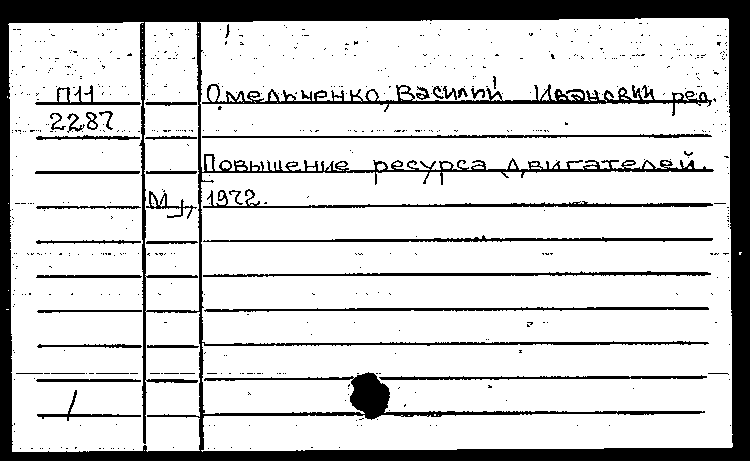 П11 Омельченко, Василий Иванович ред.
2287
Повышение ресурса двигателей.
М., 1972.